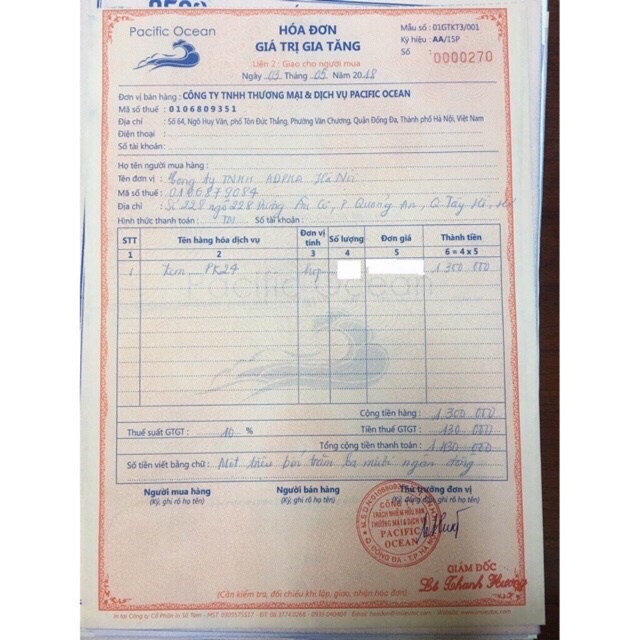 Pacific Ocean
HÓA ĐƠN
GIÁ TRỊ GIA TĂNG
Liên 2: Giao cho người mua
Ngày 03 Tháng 05 Năm 2018
Mẫu số : 01GTKT3/001
Ký hiệu : AA/15P
Số : 0000270
Đơn vị bán hàng : CÔNG TY TNHH THƯƠNG MẠI & DỊCH VỤ PACIFIC OCEAN
Mã số thuế : 0106809351
Địa chỉ : Số 64, Ngô Huy Văn, phố Tôn Đức Thắng, Phường Văn Chương, Quận Đống Đa, Thành phố Hà Nội, Việt Nam
Điện thoại :
Số tài khoản:
Họ tên người mua hàng :
Tên đơn vị : Công ty TNHH ADPKA Hà Nội
Mã số thuế: 0106879084
Địa chỉ : Số 228 ngõ 228 đường Âu Cơ, P. Quảng An, Q. Tây Hồ, HN
Hình thức thanh toán : TM Số tài khoản:
STT Tên hàng hóa dịch vụ Đơn vị tính Số lượng Đơn giá Thành tiền
1 2 3 4 5 6 = 4 x 5
1 Kem PK24 hộp 1 300 000
Pacific Ocean
Cộng tiền hàng : 1.300 000
Thuế suất GTGT : 10 % Tiền thuế GTGT : 130 000
Tổng cộng tiền thanh toán : 1.430 000
Số tiền viết bằng chữ : Một triệu bốn trăm ba mươi ngàn đồng
Người mua hàng Người bán hàng Thủ trưởng đơn vị
(Ký, ghi rõ họ tên) (Ký, ghi rõ họ tên) (Ký, đóng dấu, ghi rõ họ tên)
CÔNG TY
TRÁCH NHIỆM HỮU HẠN
THƯƠNG MẠI & DỊCH VỤ
PACIFIC
OCEAN
Q. ĐỐNG ĐA - T.P HÀ NỘI
GIÁM ĐỐC
Lê Thanh Hương
(Cần kiểm tra, đối chiếu khi lập, giao, nhận hóa đơn)